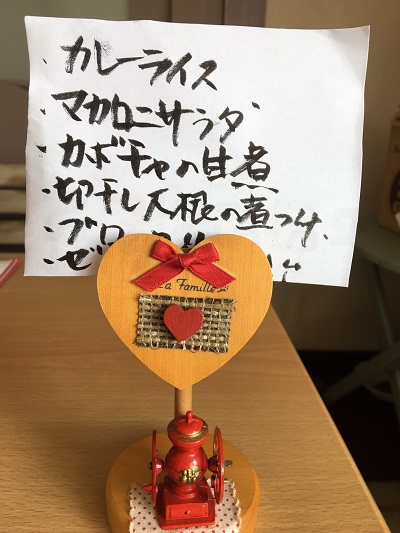 カレーライス
マカロニサラダ
・カボチャの甘煮
・切干し大根の煮つけ
・ブロ
・ゼ
La Famille